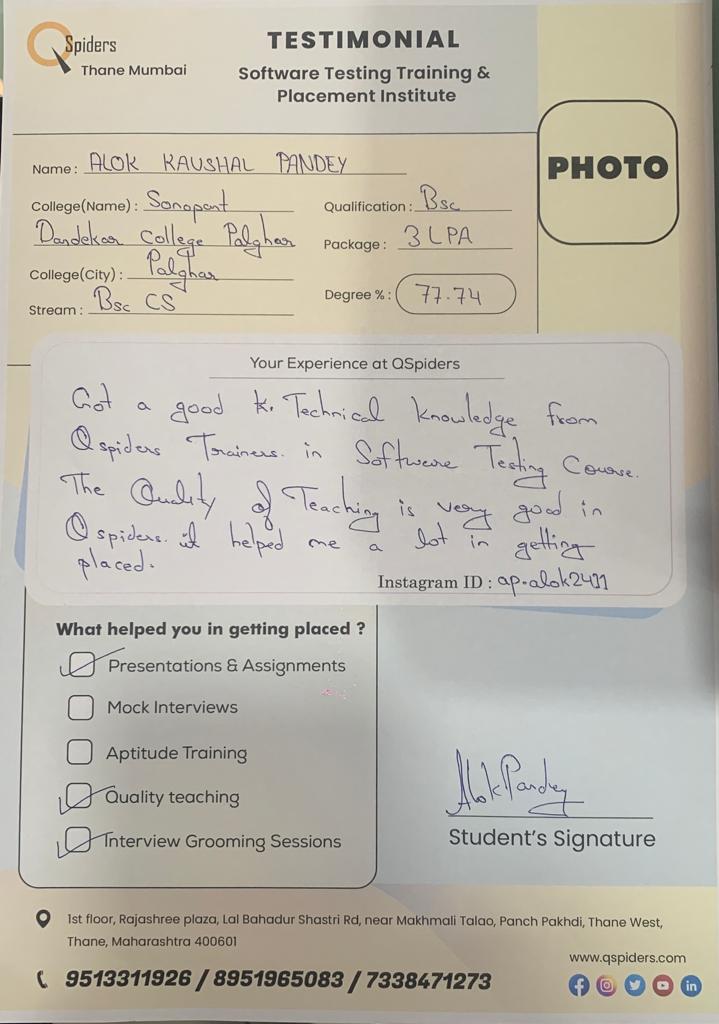 QSpiders
Thane Mumbai
TESTIMONIAL
Software Testing Training &
Placement Institute
PHOTO
Name : ALOK KAUSHAL PANDEY
College(Name) : Sonopant
Dandekar College Palghar
College(City) : Palghar
Stream : Bsc CS
Qualification : Bsc
Package : 3 LPA
Degree % : 77.74
Your Experience at QSpiders
Got a good k. Technical knowledge from
Qspiders Trainers. in Software Testing Course.
The Quality of Teaching is very good in
Qspiders. it helped me a lot in getting
placed.
Instagram ID : ap.alok2411
What helped you in getting placed ?
Presentations & Assignments
Mock Interviews
Aptitude Training
Quality teaching
Interview Grooming Sessions
Alok Pandey
Student's Signature
1st floor, Rajashree plaza, Lal Bahadur Shastri Rd, near Makhmali Talao, Panch Pakhdi, Thane West,
Thane, Maharashtra 400601
www.qspiders.com
9513311926 / 8951965083 / 7338471273